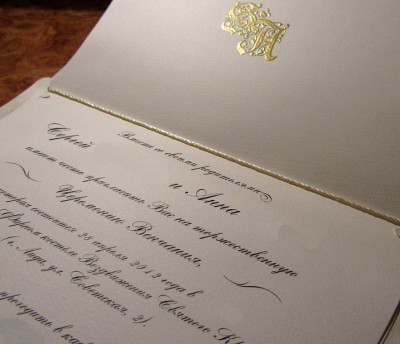 Вместе со своими родителями
Сергей и Анна
имеют честь пригласить Вас на торжественную
Церемонию Венчания,
которая состоится 28 апреля 2012 года в
Фарном костеле Воздвижения Святого
(г. Лида, ул. Советская, 2),
в